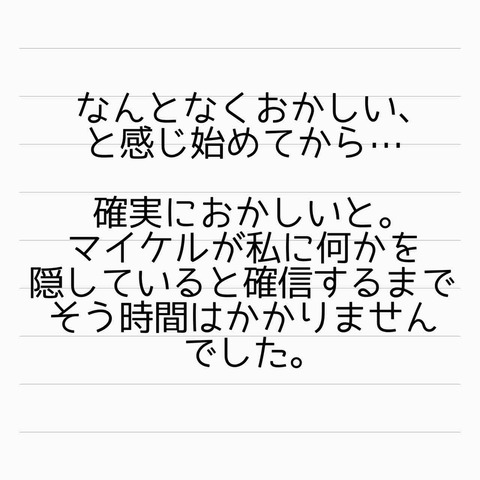 なんとなくおかしい、
と感じ始めてから…
確実におかしいと。
マイケルが私に何かを
隠していると確信するまで
そう時間はかかりません
でした。